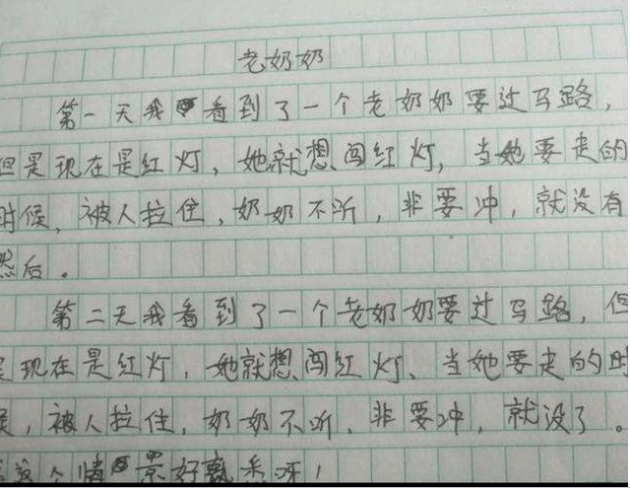 老奶奶
第一天我看到了一个老奶奶要过马路，
但是现在是红灯，她就想闯红灯，当她要走的
时候，被人拉住，奶奶不听，非要冲，就没有
然后。
第二天我看到了一个老奶奶要过马路，但
是现在是红灯，她就想闯红灯、当她要走的时
候，被人拉住，奶奶不听，非要冲，就没了。
这个情景好熟悉呀！